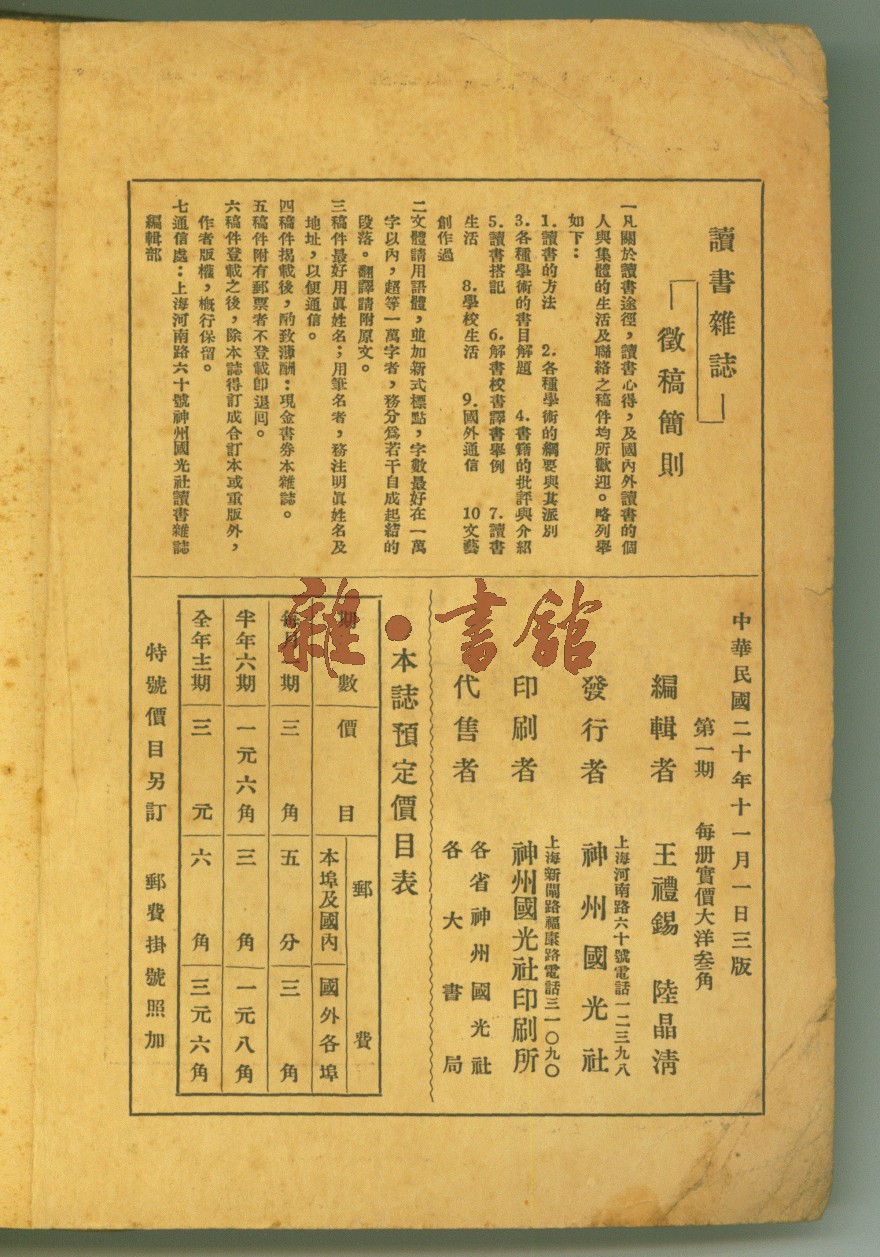 讀書雜誌
徵稿簡則
一凡關於讀書途徑，讀書心得，及國內外讀書的個
人與集體的生活及聯絡之稿件均所歡迎。略列舉
如下：
1.讀書的方法　2.各種學術的綱要與其派別
3.各種學術的書目解題　4.書籍的批評與介紹
5.讀書搭記　6.解書校書譯書舉例　7.讀書
生活　8.學校生活　9.國外通信　10文藝
創作過
二文體請用語體，並加新式標點，字數最好在一萬
字以內，超等一萬字者，務分為若干自成起結的
段落。翻譯請附原文。
三稿件最好用眞姓名；用筆名者，務注明眞姓名及
地址，以便通信。
四稿件揭載後，酌致薄酬：現金書券本雜誌。
五稿件附有郵票者不登載卽退囘。
六稿件登載之後，除本誌得訂成合訂本或重版外，
作者版權，槪行保留。
七通信處：上海河南路六十號神州國光社讀書雜誌
編輯部
中華民國二十年十一月一日三版
第一期　每册實價大洋叁角
編輯者　王禮錫　陸晶淸
上海河南路六十號電話一二三九八
發行者　神州國光社
上海新閘路福康路電話三一〇九〇
印刷者　神州國光社印刷所
代售者
各省神州國光社
各大書局
本誌預定價目表
期數　價目　郵費
本埠及國內　國外各埠
每月一期　三角　五分　三角
半年六期　一元六角　三角　一元八角
全年十二期　三元　六角　三元六角
特號價目另訂　郵費掛號照加
雜·書館